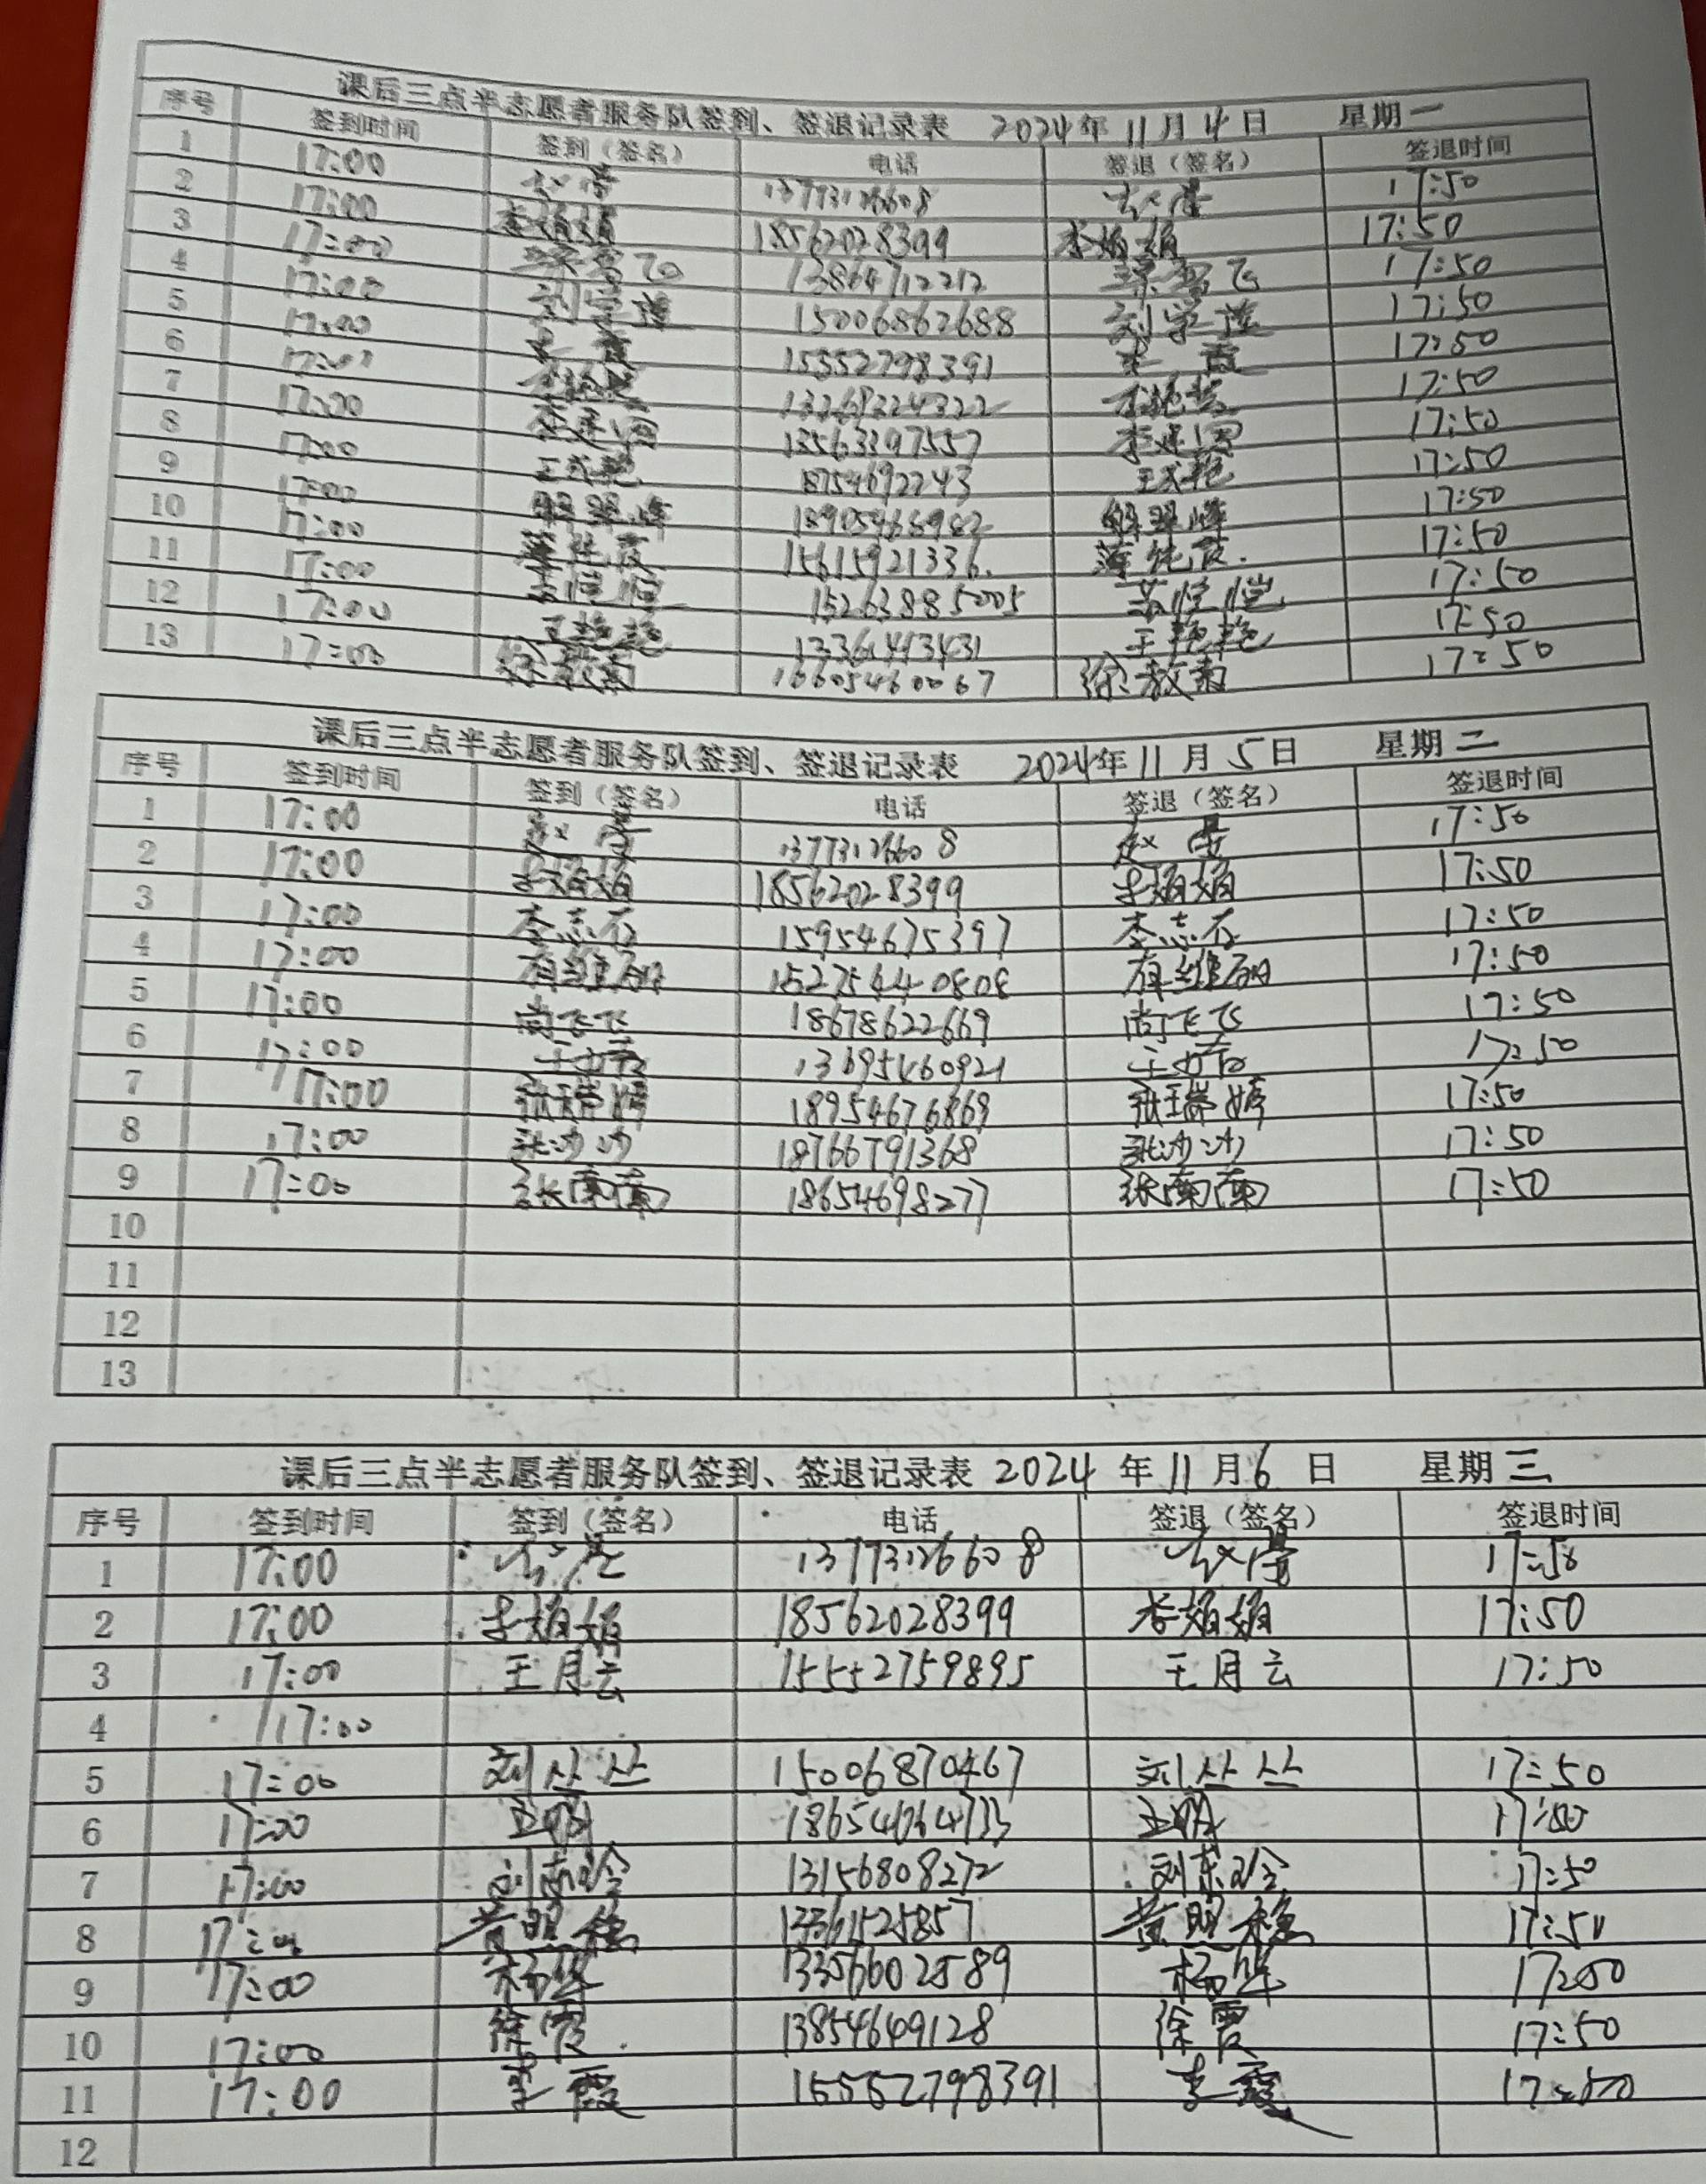 课后三点半志愿者服务队签到、签退记录表 2024年11月4日 星期一
序号 签到时间 签到（签名） 电话 签退（签名） 签退时间
1 17:00 13773126608 17:50
2 17:00 李娟娟 18562028399 李娟娟 17:50
3 17:00 13864712212 17:50
4 17:00 刘学莲 15006862688 刘学莲 17:50
5 17:00 李霞 15552798391 李霞 17:50
6 17:00 13268224322 17:50
7 17:00 17:50
8 17:00 18754692243 17:50
9 17:00 解翠峰 解翠峰 17:50
10 17:00 薄纯霞 15615921336. 薄纯霞. 17:50
11 17:00 苏恺恺 15263885005 苏恺恺 17:50
12 17:00 王艳艳 13361443431 王艳艳 17:50
13 17:00 徐教南 16605460067 徐教南 17:50
课后三点半志愿者服务队签到、签退记录表 2024年11月5日 星期二
序号 签到时间 签到（签名） 电话 签退（签名） 签退时间
1 17:00 13773126608 17:50
2 17:00 李娟娟 18562028399 李娟娟 17:50
3 17:00 李志石 15954675397 李志石 17:50
4 17:00 15275440808 17:50
5 17:00 尚飞飞 18678622669 尚飞飞 17:50
6 17:00 13695460921 17:50
7 17:00 张瑞婷 18954676869 张瑞婷 17:50
8 17:00 张沙沙 18766791368 张沙沙 17:50
9 17:00 张南南 18654698277 张南南 17:50
10
11
12
13
课后三点半志愿者服务队签到、签退记录表 2024年11月6日 星期三
序号 签到时间 签到（签名） 电话 签退（签名） 签退时间
1 17:00 13773126608 17:50
2 17:00 李娟娟 18562028399 李娟娟 17:50
3 17:00 王月云 15552759895 王月云 17:50
4 17:00
5 17:00 刘丛丛 15006870467 刘丛丛 17:50
6 17:00 17:50
7 17:00 刘东玲 13156808272 刘东玲 17:50
8 17:00 黄明稳 13361525857 黄明稳 17:50
9 17:00 13356602589 17:50
10 17:00 徐霞. 13854649128 徐霞 17:50
11 17:00 李霞 15552798391 李霞 17:50
12